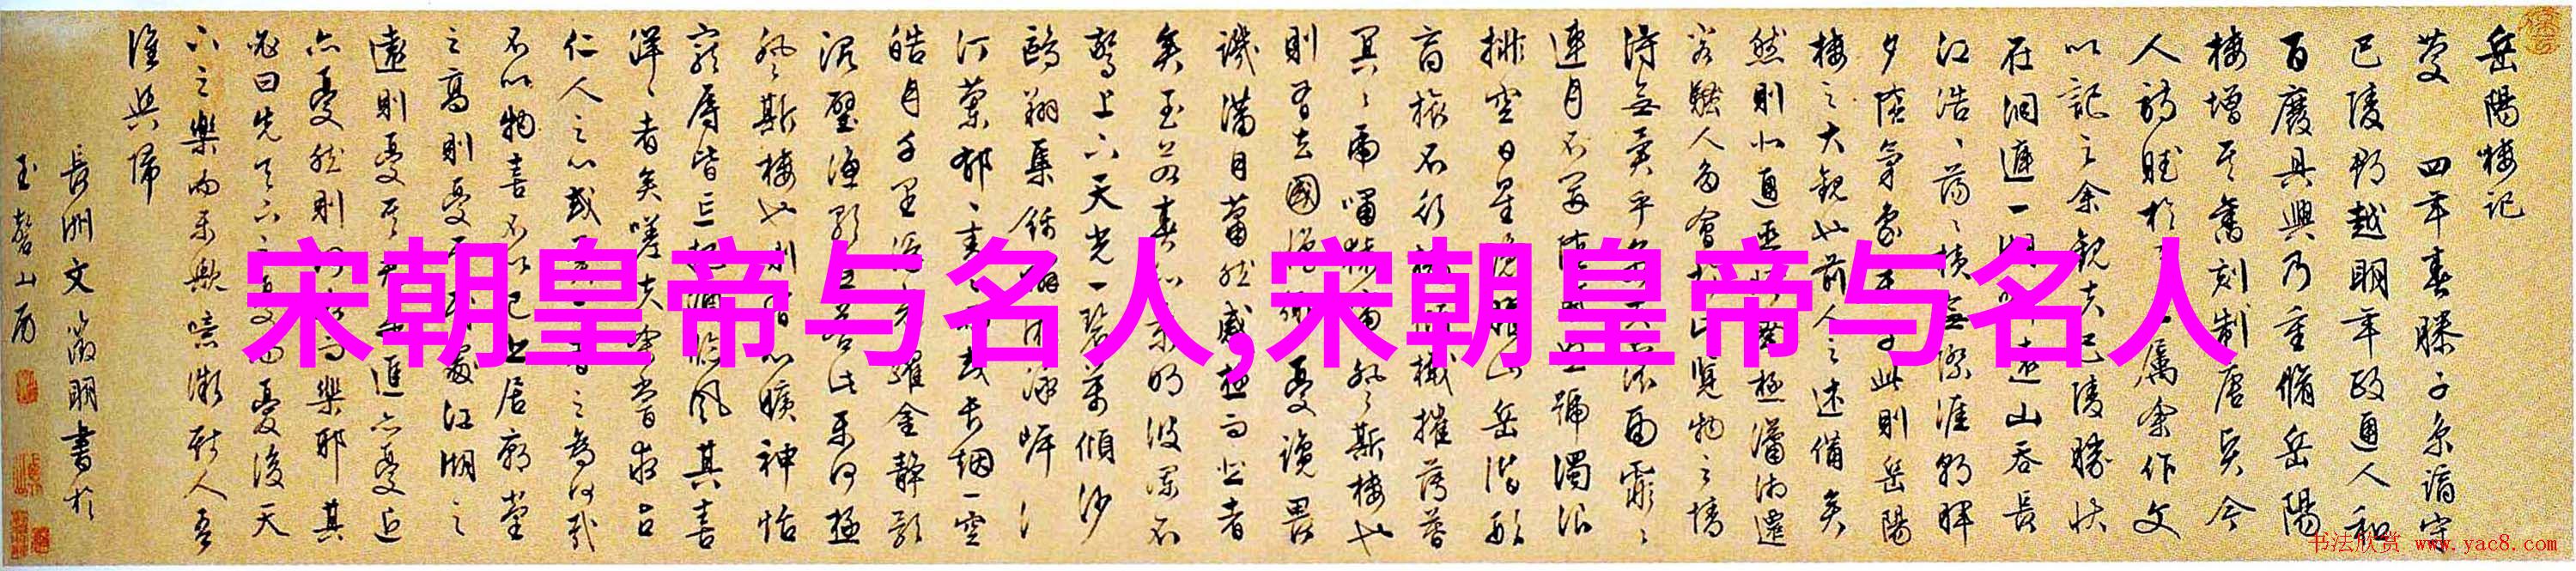 岳陽樓記
慶 四年春滕子京謫守
巴陵郡越明年政通人和
百廢具興乃重脩岳陽
樓增其舊刻制唐賢今
人詩賦於 屬余作文
以記之余觀夫巴陵勝狀
在洞庭一湖 遠山吞長
江浩〻蕩〻橫無際涯朝暉
夕陰氣象萬千此則岳陽
樓之大觀也前人之述備矣
然則北通巫峽南極瀟湘遷
客騷人多會於此覽物之情
得無異乎若夫霪雨霏〻
連月不開陰風怒號濁浪
排空日星隱曜山岳潛形
商旅不行檣傾楫摧薄暮
冥〻虎嘯猿啼登斯樓也
則有去國懷鄉憂讒畏
譏滿目蕭然感極而悲者
矣至若春和景明波瀾不
驚上下天光一碧萬頃沙
鷗翔集錦鱗游泳岸
汀蘭郁〻青〻而或長烟一空
皓月千里浮光耀金靜影
沉璧漁歌互答此樂何極
登斯樓也則有心曠神怡
寵辱皆忘把酒臨風其喜
洋〻者矣嗟夫予嘗求古
仁人之心或異二者之為何哉
不以物喜不以己悲居廟堂
之高則憂其民處江湖之
遠則憂其君是進亦憂退
亦憂然則何時而樂耶其
必曰先天下之憂而憂後天
下之樂而樂歟噫微斯人吾
誰與歸
長洲文徵明書於
玉磬山房
宋朝皇帝与名人,宋朝皇帝与名人
书法欣赏 www.yac8.com